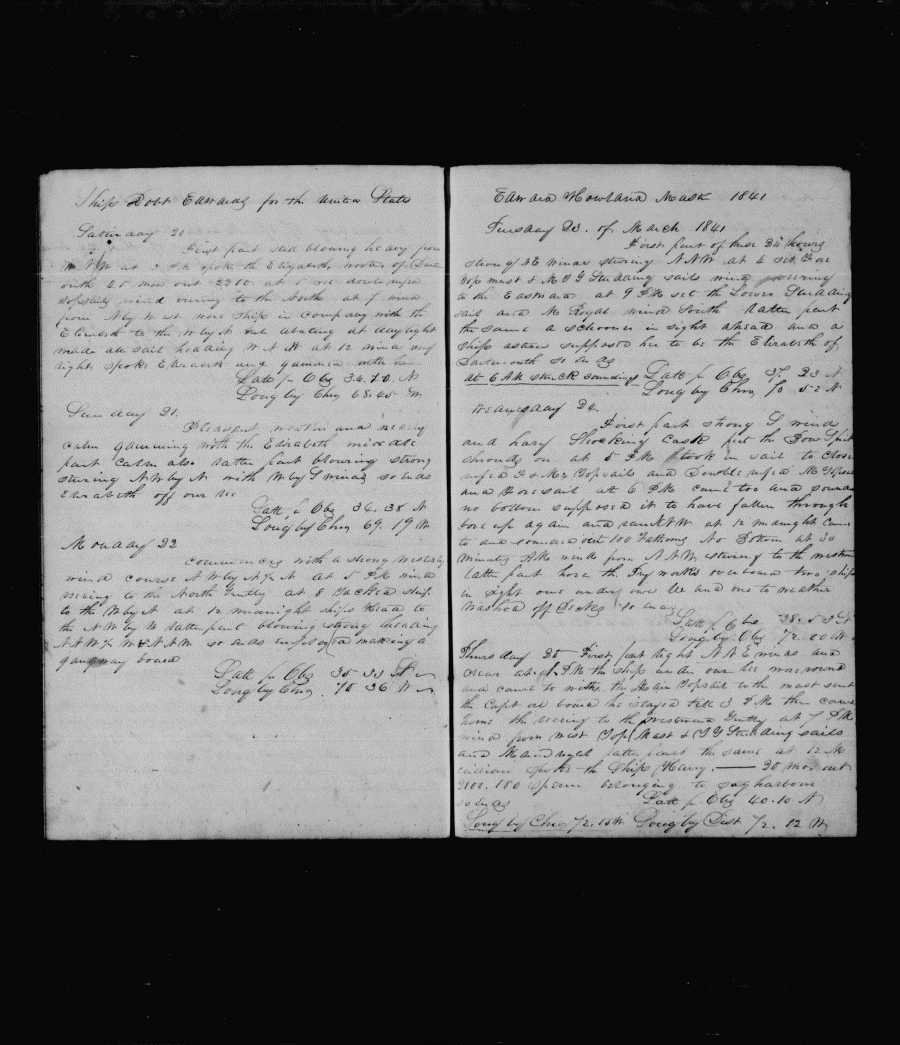 Ship Robt Edwards for the United States
Saturday 20
First part still blowing heavy from
W N W at 3 PM spoke the Elizabeth of Dart
outh 20 mos out 2200 at 5 set double reefed
topsails wind veering to the North at 7 wind
from N by W one more ship in company with the
Elizabeth to the W by N gale abating at daylight
made all sail heading W N W at 12 wind very
light spoke Elizabeth and gammed with him
Latt by Obs 34.20 N
Long by Chro 68.45 W
Sunday 21.
Pleasant weather and nearly
calm gamming with the Elizabeth middle
part calm also latter part blowing strong
steering N W by N with W by S wind so ends
Elizabeth off our lee
Latt by Obs 34.38 N
Long by Chro 69.19 W
Monday 22
commences with a strong westerly
wind course N W by N ½ N at 5 PM wind
veering to the North Gently at 8 tacked ship
to the W by N at 12 midnight ships head to
the N W by W latter part blowing strong heading
N W ½ W & N N W so ends employed making a
gangway board
Latt by Obs 35-33 N
Long by Chro 70 36 W
Edward Howland Mask 1841
Tuesday 23. of March 1841
First part of these 24 hours
strong S E winds steering N N W at 4 set Fore
Top mast & M T G Studding sails wind veering
to the Eastward at 9 PM set the Lower Studding
sail and M Royal wind South latter part
the same a schooner in sight ahead and a
ship astern supposed her to be the Elizabeth of
Dartmouth so ends
at 6 AM struck soundings Latt by Obs 37. 23 N
Long by Chro 70 52 W
Wednesday 24.
First part strong S wind
and hazy Shooking Cask put the Bow Sprit
shrouds on at 5 PM took in sail to close
reefed F & Mz Topsails and Double reefed M Topsail
and Foresail at 6 PM came too and sounded
no bottom supposed it to have fallen through
bore up again and ran N W at 12 midnight came
to and sounded out 100 Fathoms No Bottom at 30
minutes AM wind from N N W steering to the western
latter part hove the Try works overboard two ships
in sight one under our lee and one to weather
washed off Decks so ends
Latt by Obs 38. 53 N
Long by Obs 72 00 W
Thursday 25 First part light N N E winds and
clear at 1 PM the ship under our lee wore round
and came to with the Main Topsail to the mast sent
the Capt on board he stayed till 3 PM then came
home the veering to the westward Gently at 7 PM
wind from West Top Mast & T G Studding sails
and Main royal latter part the same at 12 M
spoke the Ship Henry. —— 20 mos out
2100. 180 sperm belonging to sagharbour
so ends
Latt by Obs 40.10 N
Long by Chro 72.15 W Long by Dist 72. 12 W